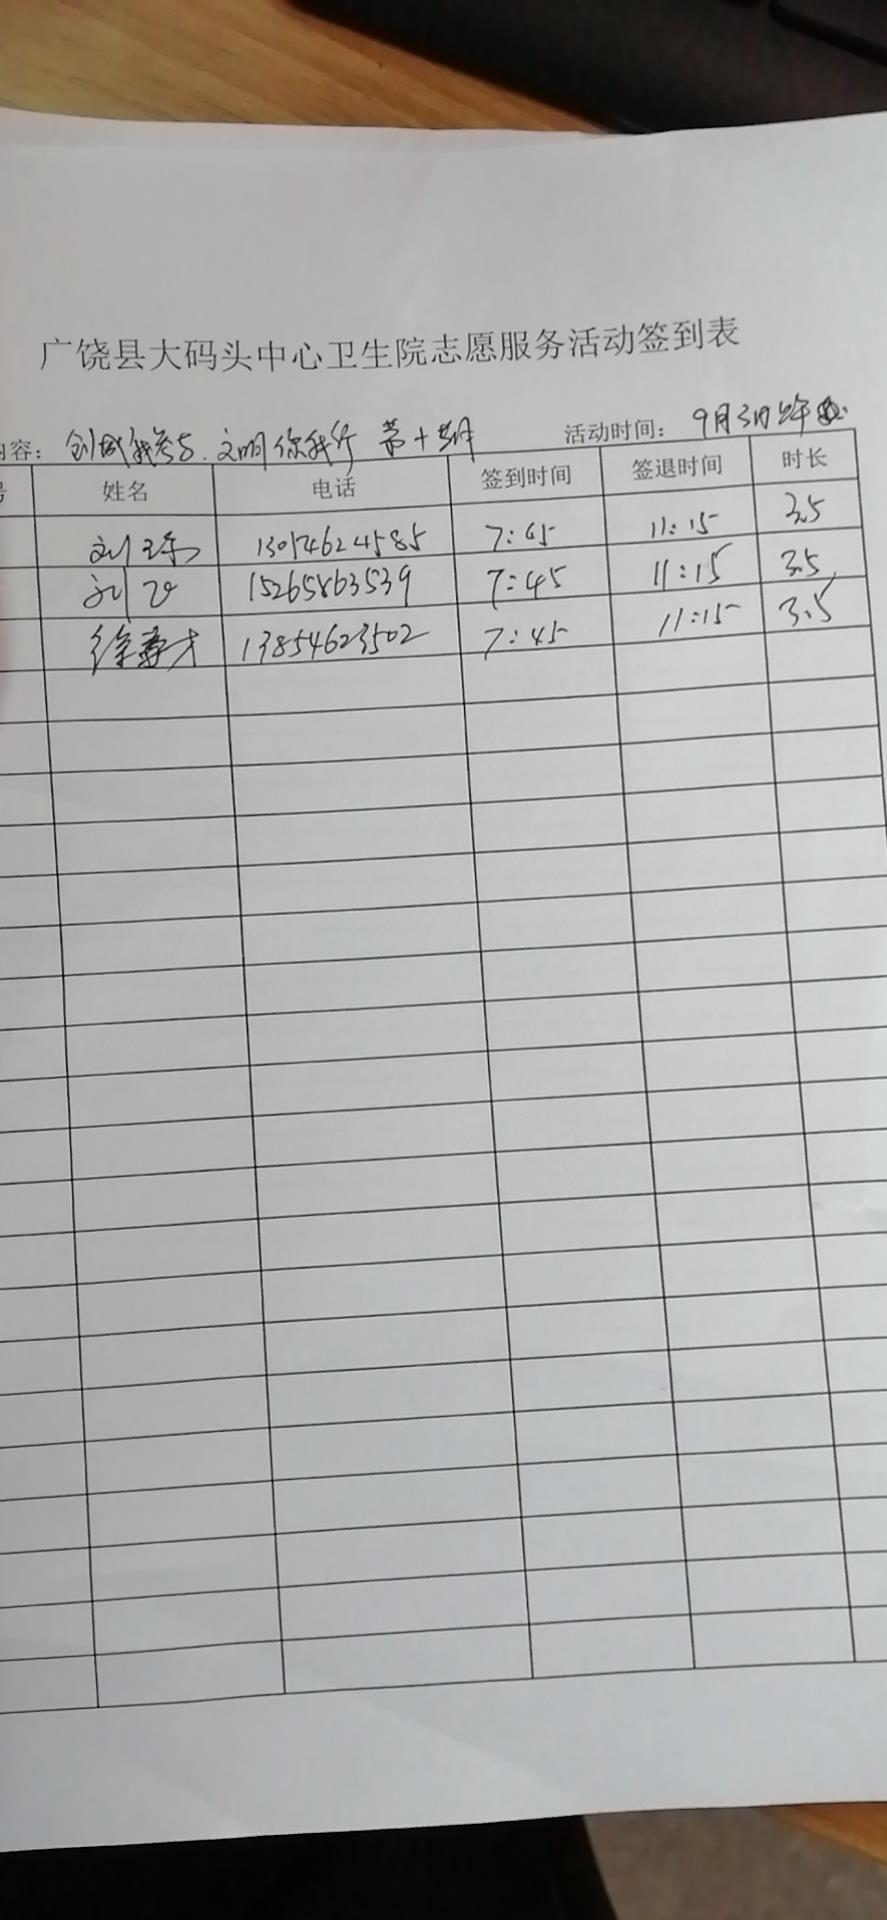 广饶县大码头中心卫生院志愿服务活动签到表
内容： 创城我参与.文明你我行 第十期 活动时间： 9月3日上午
号 姓名 电话 签到时间 签退时间 时长
刘 13054624585 7:45 11:15 3.5
刘 15265863539 7:45 11:15 3.5
徐寿才 13854623502 7:45 11:15 3.5